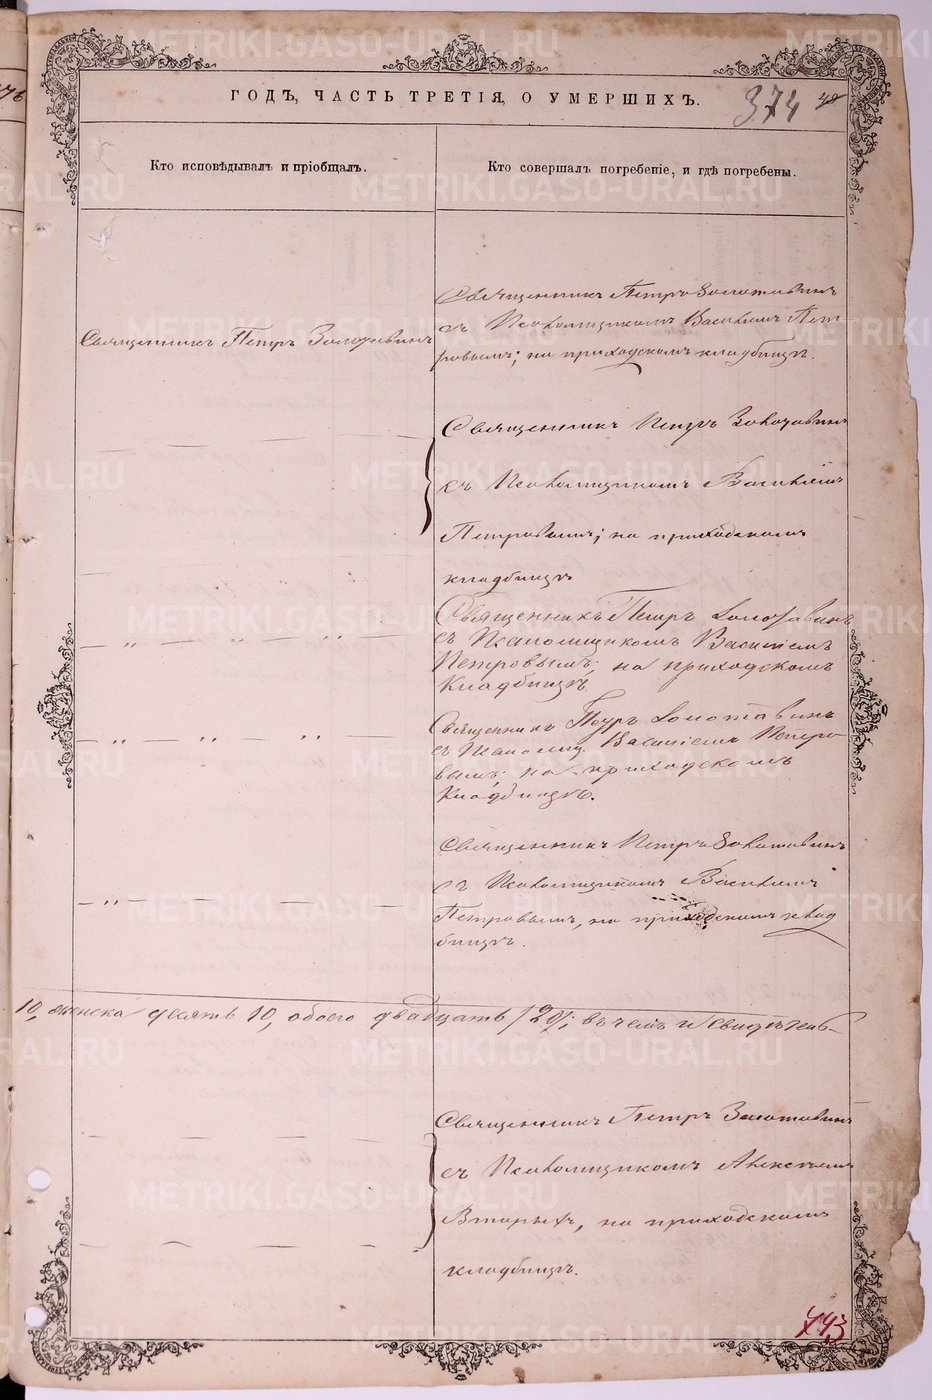 ГОДЪ, ЧАСТЬ ТРЕТІЯ, О УМЕРШИХЪ.
374
Кто исповѣдывалъ и пріобщалъ.
Кто совершалъ погребеніе, и гдѣ погребены.
Священникъ Петръ Золотавинъ
Священникъ Петръ Золотавинъ
съ Псаломщикомъ Василіемъ Пет
ровымъ; на приходскомъ кладбищѣ.
Священникъ Петръ Золотавинъ
съ Псаломщикомъ Василіемъ
Петровымъ; на приходскомъ
кладбищѣ
Священникъ Петръ Золотавинъ
съ Псаломщикомъ Василіемъ
Петровымъ; на приходскомъ
Кладбищѣ.
Священникъ Петръ Золотавинъ
съ Псаломщ. Василіемъ Петро-
вымъ; на приходскомъ
Кладбищѣ.
Священникъ Петръ Золотавинъ
съ Псаломщикомъ Василіемъ
Петровымъ, на приходскомъ клад
бищѣ.
10, женска десять 10, обоего двадцать /20/; въ чемъ и свидѣтель-
Священникъ Петръ Золотавинъ
съ Псаломщикомъ Алексѣемъ
Вторыхъ, на приходскомъ
кладбищѣ.
443
METRIKI.GASO-URAL.RU